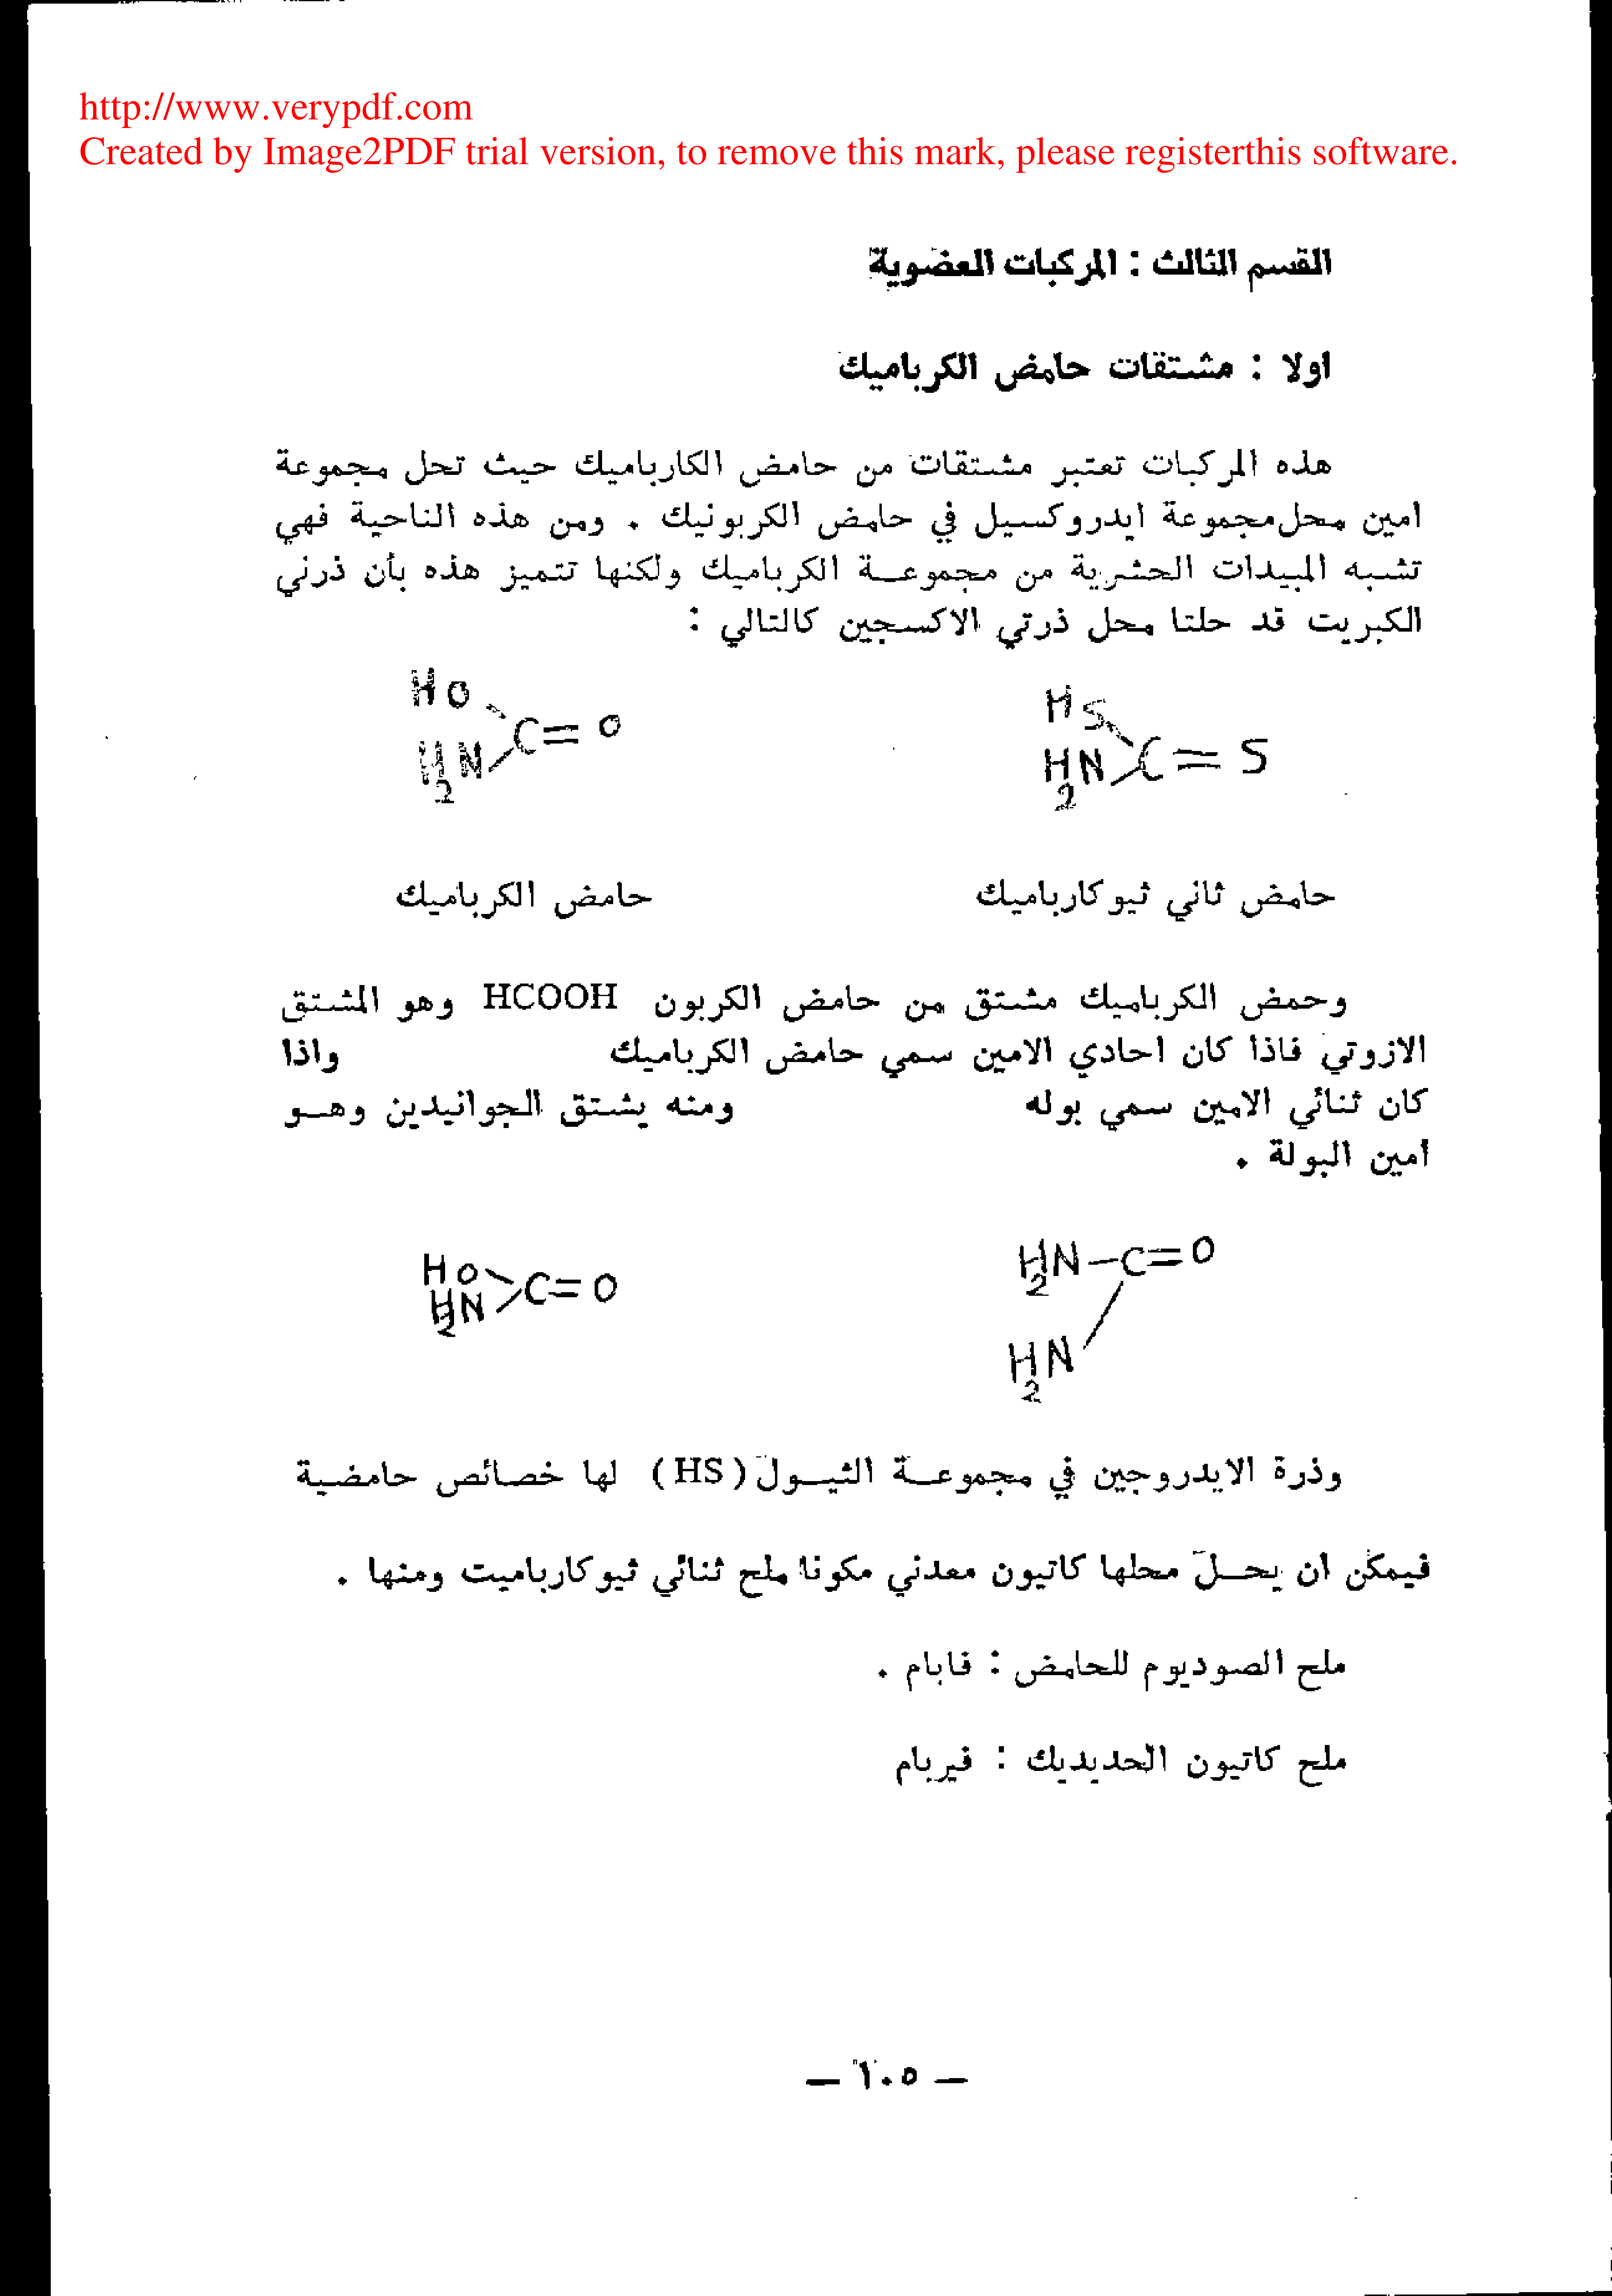 http://www.verypdf.com
Created by Image2PDF trial version, to remove this mark, please registerthis software.
القسم الثالث : المركبات العضوية
اولا : مشتقات حامض الكرباميك
هذه المركبات تعتبر مشتقات من حامض الكارباميك حيث تحل مجموعة
امين محل مجموعة ايدروكسيل في حامض الكربونيك . ومن هذه الناحية فهي
تشبه المبيدات الحشرية من مجموعـة الكرباميك ولكنها تتميز هذه بأن ذرني
الكبريت قد حلتا محل ذرتي الاكسجين كالتالي :
HS
H2N C = S
HO
H2N C = O
حامض ثاني ثيوكارباميك
حامض الكرباميك
وحمض الكرباميك مشتق من حامض الكربون HCOOH وهو المشتق
الازوتي فاذا كان احادي الامين سمي حامض الكرباميك واذا
كان ثنائي الامين سمي بوله ومنه يشتق الجوانيدين وهـو
امين البولة .
H2N - C = O
H2N
HO
H2N C = O
وذرة الايدروجين في مجموعـة الثيـول (HS) لها خصائص حامضية
فيمكن ان يحـل محلها كاتيون معدني مكونا ملح ثنائي ثيوكارباميت ومنها .
ملح الصوديوم للحامض : فابام .
ملح كاتيون الحديديك : فيربام
— ١٠٥ —